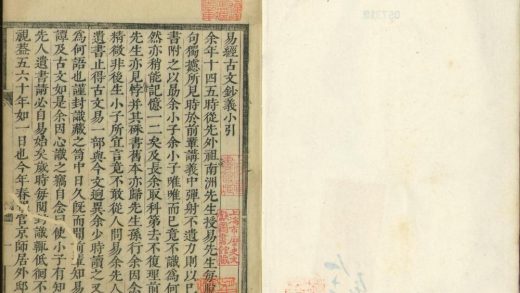 易經古文鈔義小引
余年十四五時從先外祖南洲先生授易先生每
句獨攄所見時於前輩講義中彈射不遺力則以已
書附之以勗余小子余小子唯唯而已竟不識為何
然亦稍能記憶一二矣及長余取科第去不復理前
先生亦見背并其殊書舊本亦歸先生孫行余因念
精微非後生小子所宜言竟不敢從人問易余先人
遺書止得古文易一部與今文逈異余少時讀之又
為何語也謹封識藏之笥中日久旣而聞前輩知易
譚及古文如是余因心識之竊自念曰使小子有知
先人遺書請必自易始矣歲時每閱封識輒低徊不
視葢五六十年如一日也今年春官京師居外邸
上海市歷史文
獻圖書館藏